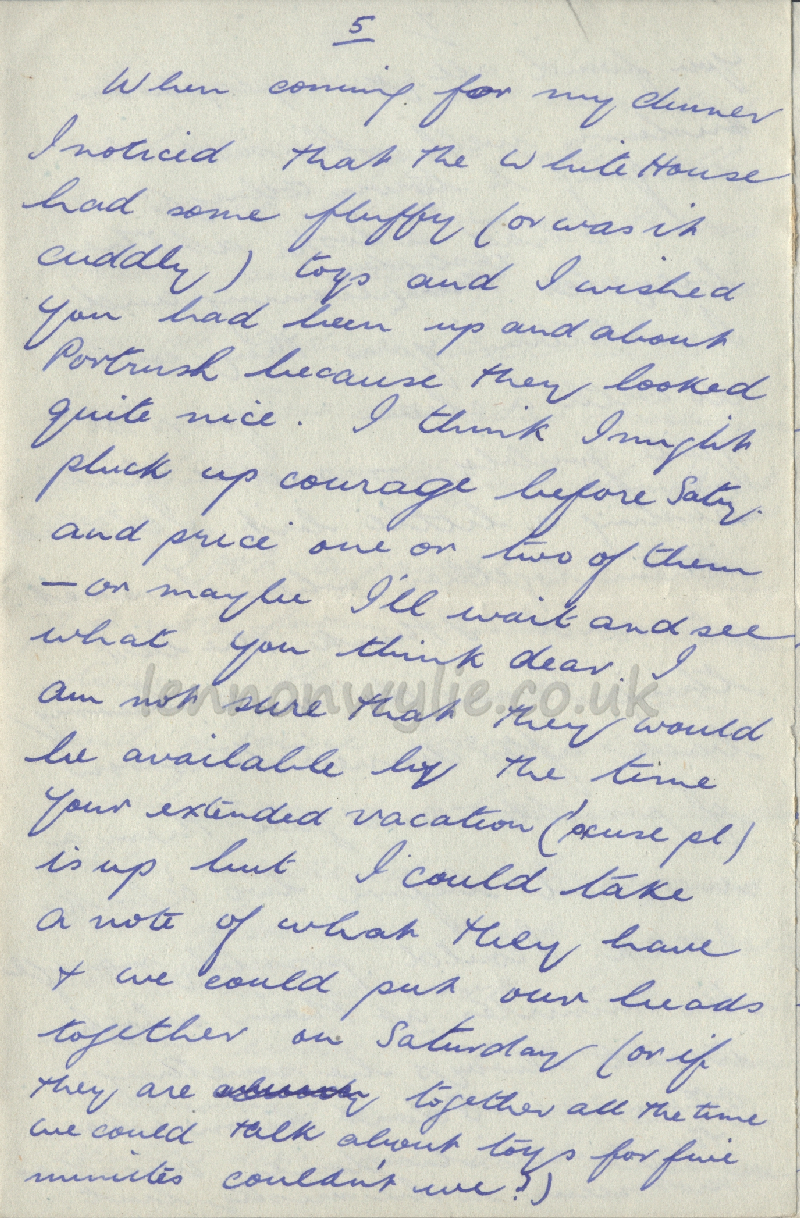 5
When coming for my dinner
I noticed that the White House
had some fluffy (or was it
cuddly) toys and I wished
you had been up and about
Portrush because they looked
quite nice. I think I might
pluck up courage before Satdy.
and price one or two of them
— or maybe I'll wait and see
what you think dear. I
am not sure that they would
be available by the time
your extended vacation ('xcuse pl)
is up but I could take
a note of what they have
& we could put our heads
together on Saturday (or if
they are together all the time
we could talk about toys for five
minutes couldn't we?)
lennonwylie.co.uk